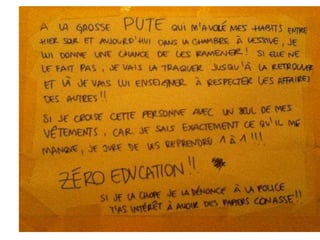 A LA GROSSE PUTE QUI M'A VOLÉ MES HABITS ENTRE
HIER SOIR ET AUJOURD'HUI DANS LA CHAMBRE À LESSIVE, JE
LUI DONNE UNE CHANCE DE LES RAMENER! SI ELLE NE
LE FAIT PAS, JE VAIS LA TRAQUER JUSQU'À LA RETROUVER
ET LÀ JE VAIS LUI ENSEIGNER À RESPECTER LES AFFAIRES
DES AUTRES!!
SI JE CROISE CETTE PERSONNE AVEC UN SEUL DE MES
VÊTEMENTS, CAR JE SAIS EXACTEMENT CE QU'IL ME
MANQUE, JE JURE DE LES REPRENDRE 1 À 1!!!
ZÉRO EDUCATION!!
SI JE LA CHOPE JE LA DÉNONCE À LA POLICE
T'AS INTÉRÊT À AVOIR DES PAPIERS CONASSE!!